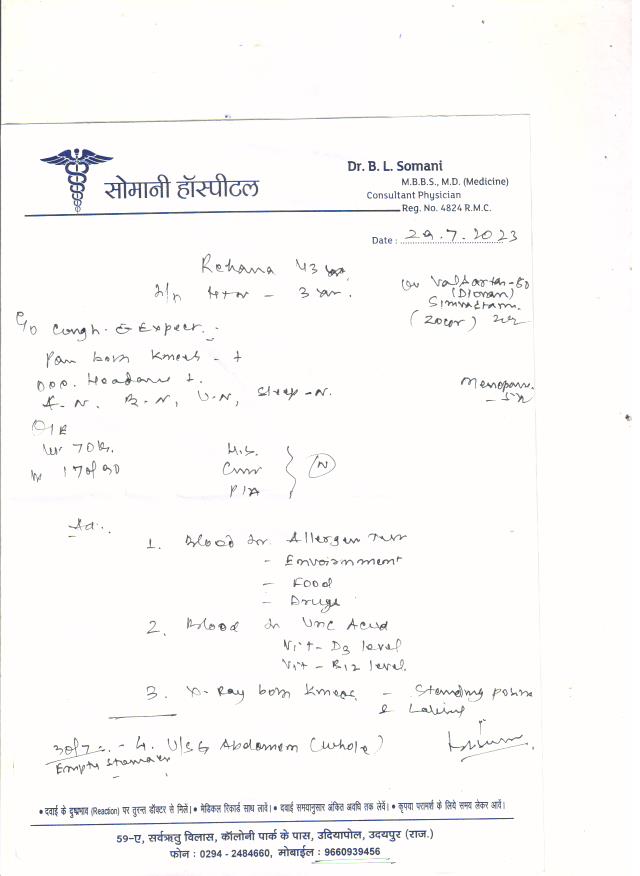 सोमानी हॉस्पीटल
Dr. B. L. Somani
M.B.B.S., M.D. (Medicine)
Consultant Physician
Reg. No. 4824 R.M.C.
Date : 29.7.2023
Rehana 43
H/o HTN - 3 yr.
On Valsartan-80
(Diovan)
(Zocor)
C/o Cough & Expect.
Pain both Knees - +
Headache +
A-N. B-N, U-N, Sleep-N.
O/E
Wt 70 K.
170/90
H.S.
P/A
N
Ad.
1. Blood for Allergen Test
- Envoirnment
- Food
- Drugs
2. Blood for Uric Acid
Vit - D3 level
Vit - B12 level.
3. X-Ray both Knees - Standing
30/7 - 4. USG Abdomen (whole)
Empty Stomach
• दवाई के दुष्प्रभाव (Reaction) पर तुरन्त डॉक्टर से मिलें। • मेडिकल रिकार्ड साथ लावें। • दवाई समयानुसार अंकित अवधि तक लेवें। • कृपया परामर्श के लिये समय लेकर आवें।
59-ए, सर्वऋतु विलास, कॉलोनी पार्क के पास, उदियापोल, उदयपुर (राज.)
फोन : 0294 - 2484660, मोबाईल : 9660939456